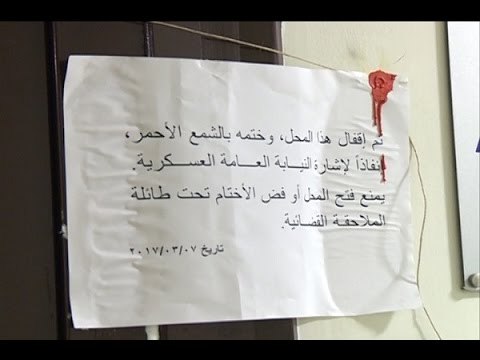 تم إقفال هذا المحل، وختمه بالشمع الأحمر،
إنفاذاً لإشارة النيابة العامة العسكرية.
يمنع فتح المحل أو فض الأختام تحت طائلة
الملاحقة القضائية.
تاريخ ٢٠١٧/٠٣/٠٧